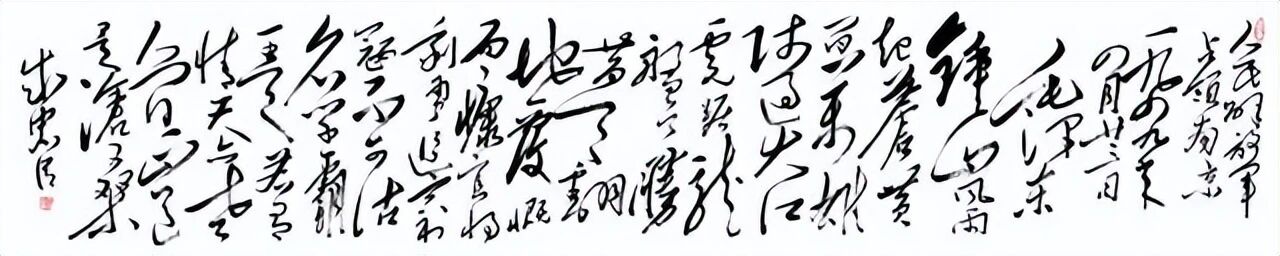 人民解放军
占领南京
一九四九年
四月廿三日
毛泽东
钟山风雨
起苍黄
百万雄
师过大江
虎踞龙
盘今胜
昔天翻
地覆慨
而慷宜将
剩勇追穷
寇不可沽
名学霸
王天若有
情天亦老
人间正道
是沧桑